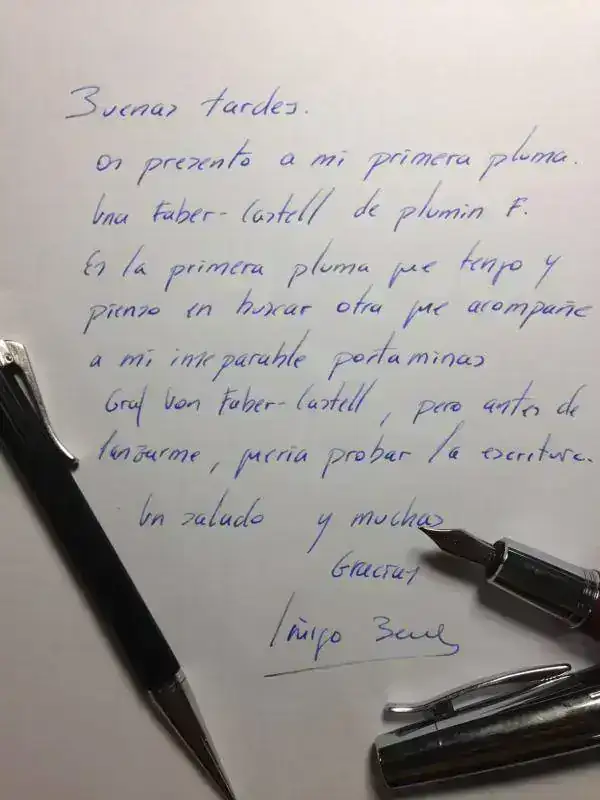 Buenas tardes.
os presento a mi primera pluma.
Una Faber-Castell de plumin F.
Es la primera pluma que tengo y
pienso en buscar otra que acompañe
a mi inseparable portaminas
Graf Von Faber-Castell, pero antes de
lanzarme, quería probar la escritura.
Un saludo y muchas
Gracias
Iñigo